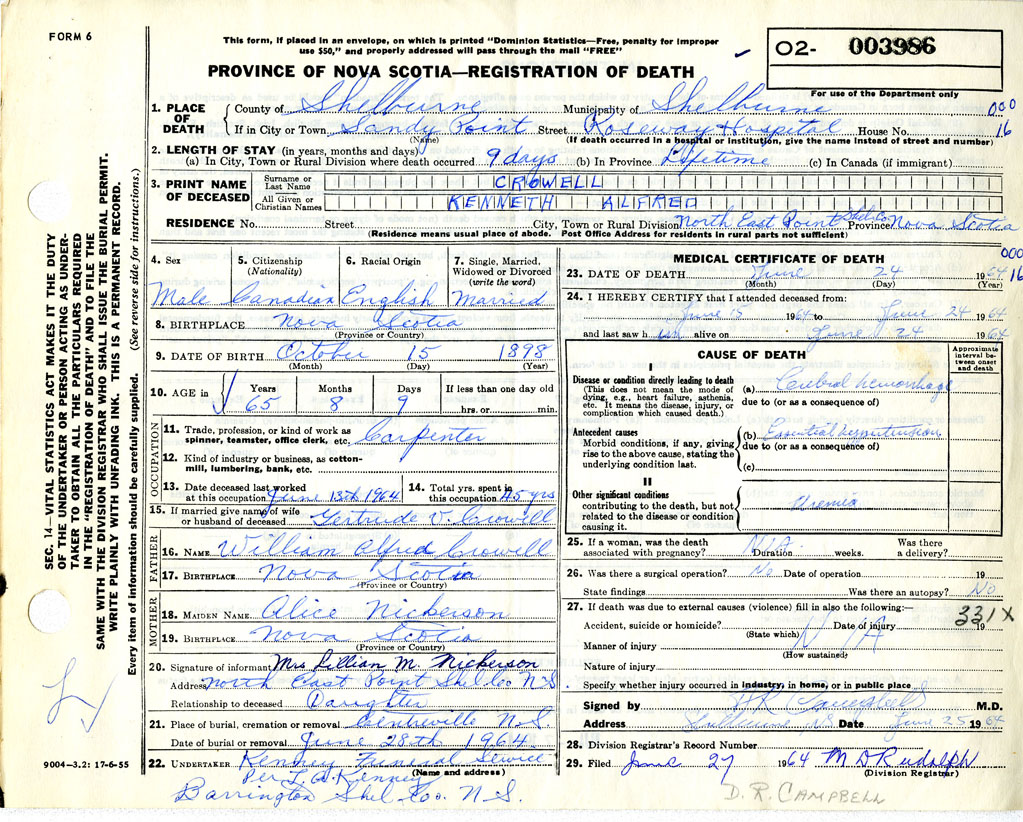 FORM 6
This form, if placed in an envelope, on which is printed "Dominion Statistics—Free, penalty for improper
use $50," and properly addressed will pass through the mail "FREE"
O2- 003986
PROVINCE OF NOVA SCOTIA—REGISTRATION OF DEATH
For use of the Department only
1. PLACE OF DEATH County of Shelburne Municipality of Shelburne 000
If in City or Town Sandy Point Street Roseway Hospital House No. 16
(Name) (If death occurred in a hospital or institution, give the name instead of street and number)
2. LENGTH OF STAY (in years, months and days)
(a) In City, Town or Rural Division where death occurred 9 days (b) In Province Lifetime (c) In Canada (if immigrant)
3. PRINT NAME OF DECEASED Surname or Last Name CROWELL
All Given or Christian Names KENNETH ALFRED
RESIDENCE No. Street City, Town or Rural Division North East Point Shel. Co. Province Nova Scotia
(Residence means usual place of abode. Post Office Address for residents in rural parts not sufficient)
4. Sex 5. Citizenship (Nationality) 6. Racial Origin 7. Single, Married, Widowed or Divorced (write the word)
Male Canadian English Married
8. BIRTHPLACE Nova Scotia
(Province or Country)
9. DATE OF BIRTH October 15 1898
(Month) (Day) (Year)
10. AGE in Years Months Days If less than one day old
65 8 9 hrs. or min.
OCCUPATION
11. Trade, profession, or kind of work as
spinner, teamster, office clerk, etc. Carpenter
12. Kind of industry or business, as cotton-
mill, lumbering, bank, etc.
13. Date deceased last worked at this occupation June 13th 1964 14. Total yrs. spent in this occupation 45 yrs
15. If married give name of wife
or husband of deceased Gertrude V. Crowell
FATHER
16. NAME William Alfred Crowell
17. BIRTHPLACE Nova Scotia
(Province or Country)
MOTHER
18. MAIDEN NAME Alice Nickerson
19. BIRTHPLACE Nova Scotia
(Province or Country)
20. Signature of informant Mrs Lillian M. Nickerson
Address North East Point Shel Co N S
Relationship to deceased Daughter
21. Place of burial, cremation or removal Centreville N.S.
Date of burial or removal June 28th 1964
22. UNDERTAKER Kenney Funeral Service
(Name and address)
Per L. A. Kenney
Barrington Shel Co. N.S.
9004—3.2: 17-6-55
MEDICAL CERTIFICATE OF DEATH 000
23. DATE OF DEATH June 24 1964 16
(Month) (Day) (Year)
24. I HEREBY CERTIFY that I attended deceased from:
June 15 1964 to June 24 1964
and last saw him alive on June 24 1964
CAUSE OF DEATH
Approximate interval between onset and death
I
Disease or condition directly leading to death (a) Cerebral hemorrhage
(This does not mean the mode of
dying, e.g., heart failure, asthenia,
etc. It means the disease, injury, or
complication which caused death.)
due to (or as a consequence of)
Antecedent causes (b) Essential hypertension
Morbid conditions, if any, giving
rise to the above cause, stating the
underlying condition last.
due to (or as a consequence of)
(c)
II
Other significant conditions Uremia
contributing to the death, but not
related to the disease or condition
causing it.
25. If a woman, was the death N/A Was there
associated with pregnancy? Duration weeks. a delivery?
26. Was there a surgical operation? No Date of operation 19
State findings Was there an autopsy? No
27. If death was due to external causes (violence) fill in also the following:— 331X
Accident, suicide or homicide? Date of injury 19
(State which) N/A
Manner of injury
(How sustained)
Nature of injury
Specify whether injury occurred in industry, in home, or in public place
Signed by D R Campbell M.D.
Address Shelburne NS Date June 25 1964
28. Division Registrar's Record Number
29. Filed June 27 1964 M D Rudolph
(Division Registrar)
D. R. CAMPBELL
SEC. 14—VITAL STATISTICS ACT MAKES IT THE DUTY
OF THE UNDERTAKER OR PERSON ACTING AS UNDER-
TAKER TO OBTAIN ALL THE PARTICULARS REQUIRED
IN THE "REGISTRATION OF DEATH" AND TO FILE THE
SAME WITH THE DIVISION REGISTRAR WHO SHALL ISSUE THE BURIAL PERMIT.
WRITE PLAINLY WITH UNFADING INK. THIS IS A PERMANENT RECORD.
Every item of information should be carefully supplied. (See reverse side for instructions.)